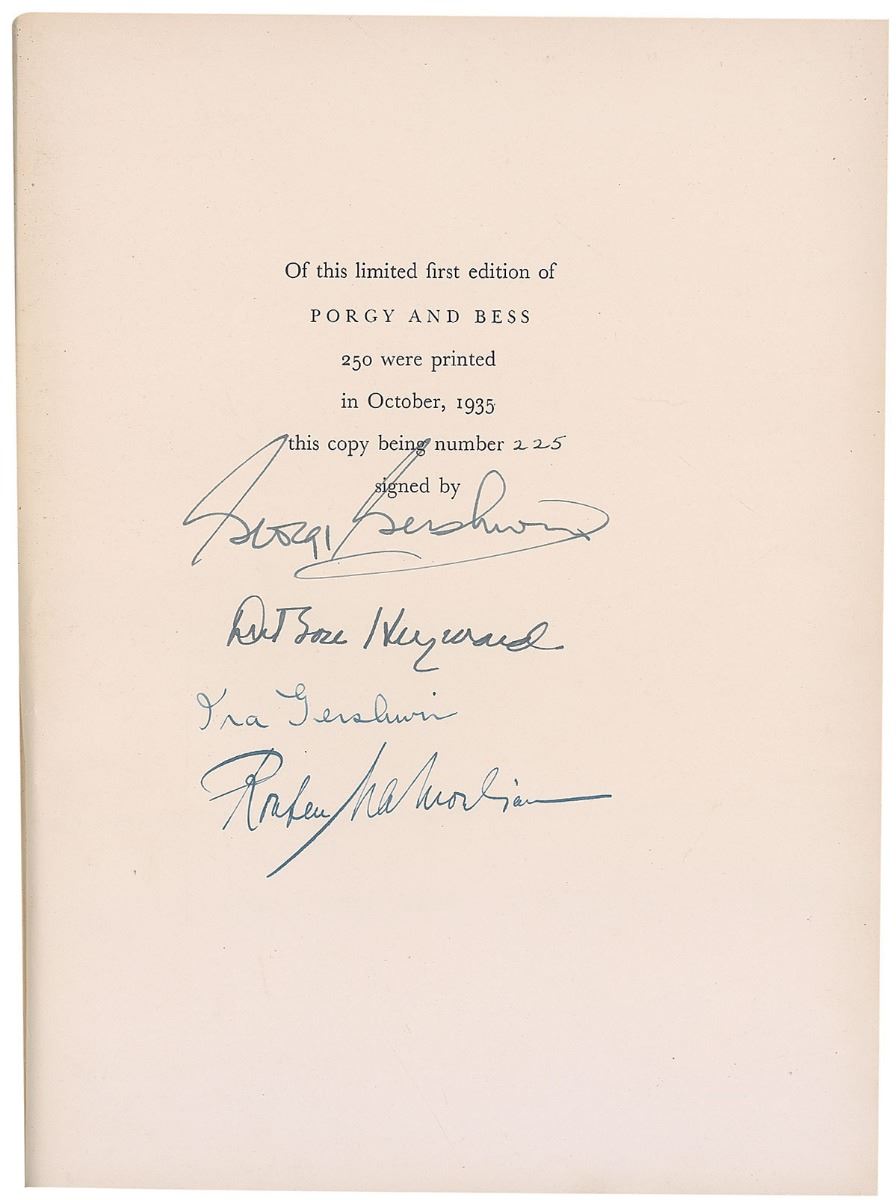 Of this limited first edition of
PORGY AND BESS
250 were printed
in October, 1935
this copy being number 225
signed by
George Gershwin
DuBose Heyward
Ira Gershwin
Rouben Mamoulian